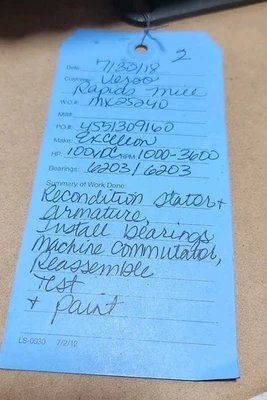 2
Date: 7/30/18
Customer: Verso
Rapids Mill
W.O.#: MK25240
M/R#:
P.O.#: 4551309160
Make: Excellon
HP: 100VDC RPM: 1000-3600
Bearings: 6203/6203
Summary of Work Done:
Recondition stator +
armature,
Install bearings,
machine commutator,
Reassemble
Test
+ paint
LS-0030 7/2/12